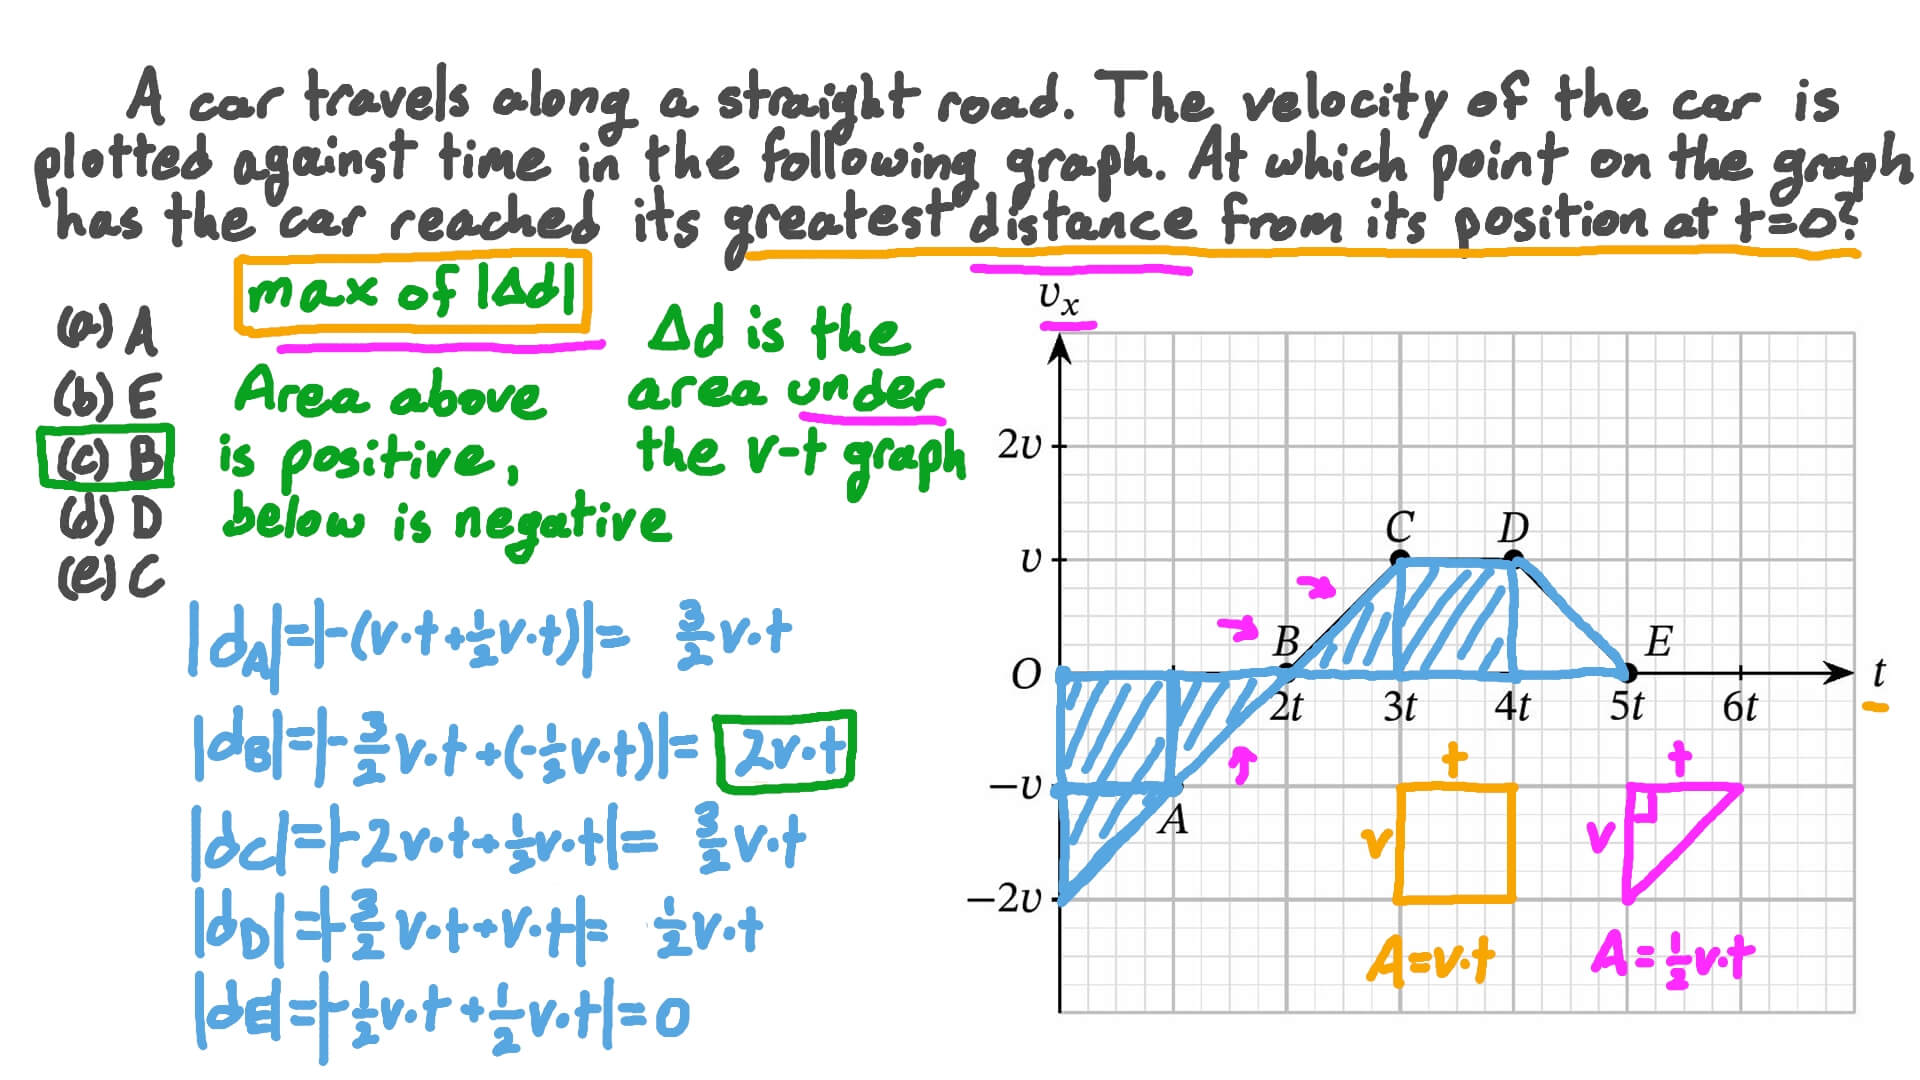 A car travels along a straight road. The velocity of the car is
plotted against time in the following graph. At which point on the graph
has the car reached its greatest distance from its position at t=0?
max of |Δd|
(a) A
(b) E
(c) B
(d) D
(e) C
Area above
is positive,
below is negative
Δd is the
area under
the v-t graph
|dA|=|-(v·t+½v·t)|= 3/2 v·t
|dB|=|-3/2 v·t+(-½v·t)|= 2v·t
|dC|=|-2v·t+½v·t|= 3/2 v·t
|dD|=|-3/2 v·t+v·t|= ½v·t
|dE|=|-½v·t+½v·t|=0
vₓ
2v
v
O
−v
−2v
C
D
B
E
A
2t 3t 4t 5t 6t
t
t
v
A=v·t
t
v
A=½v·t